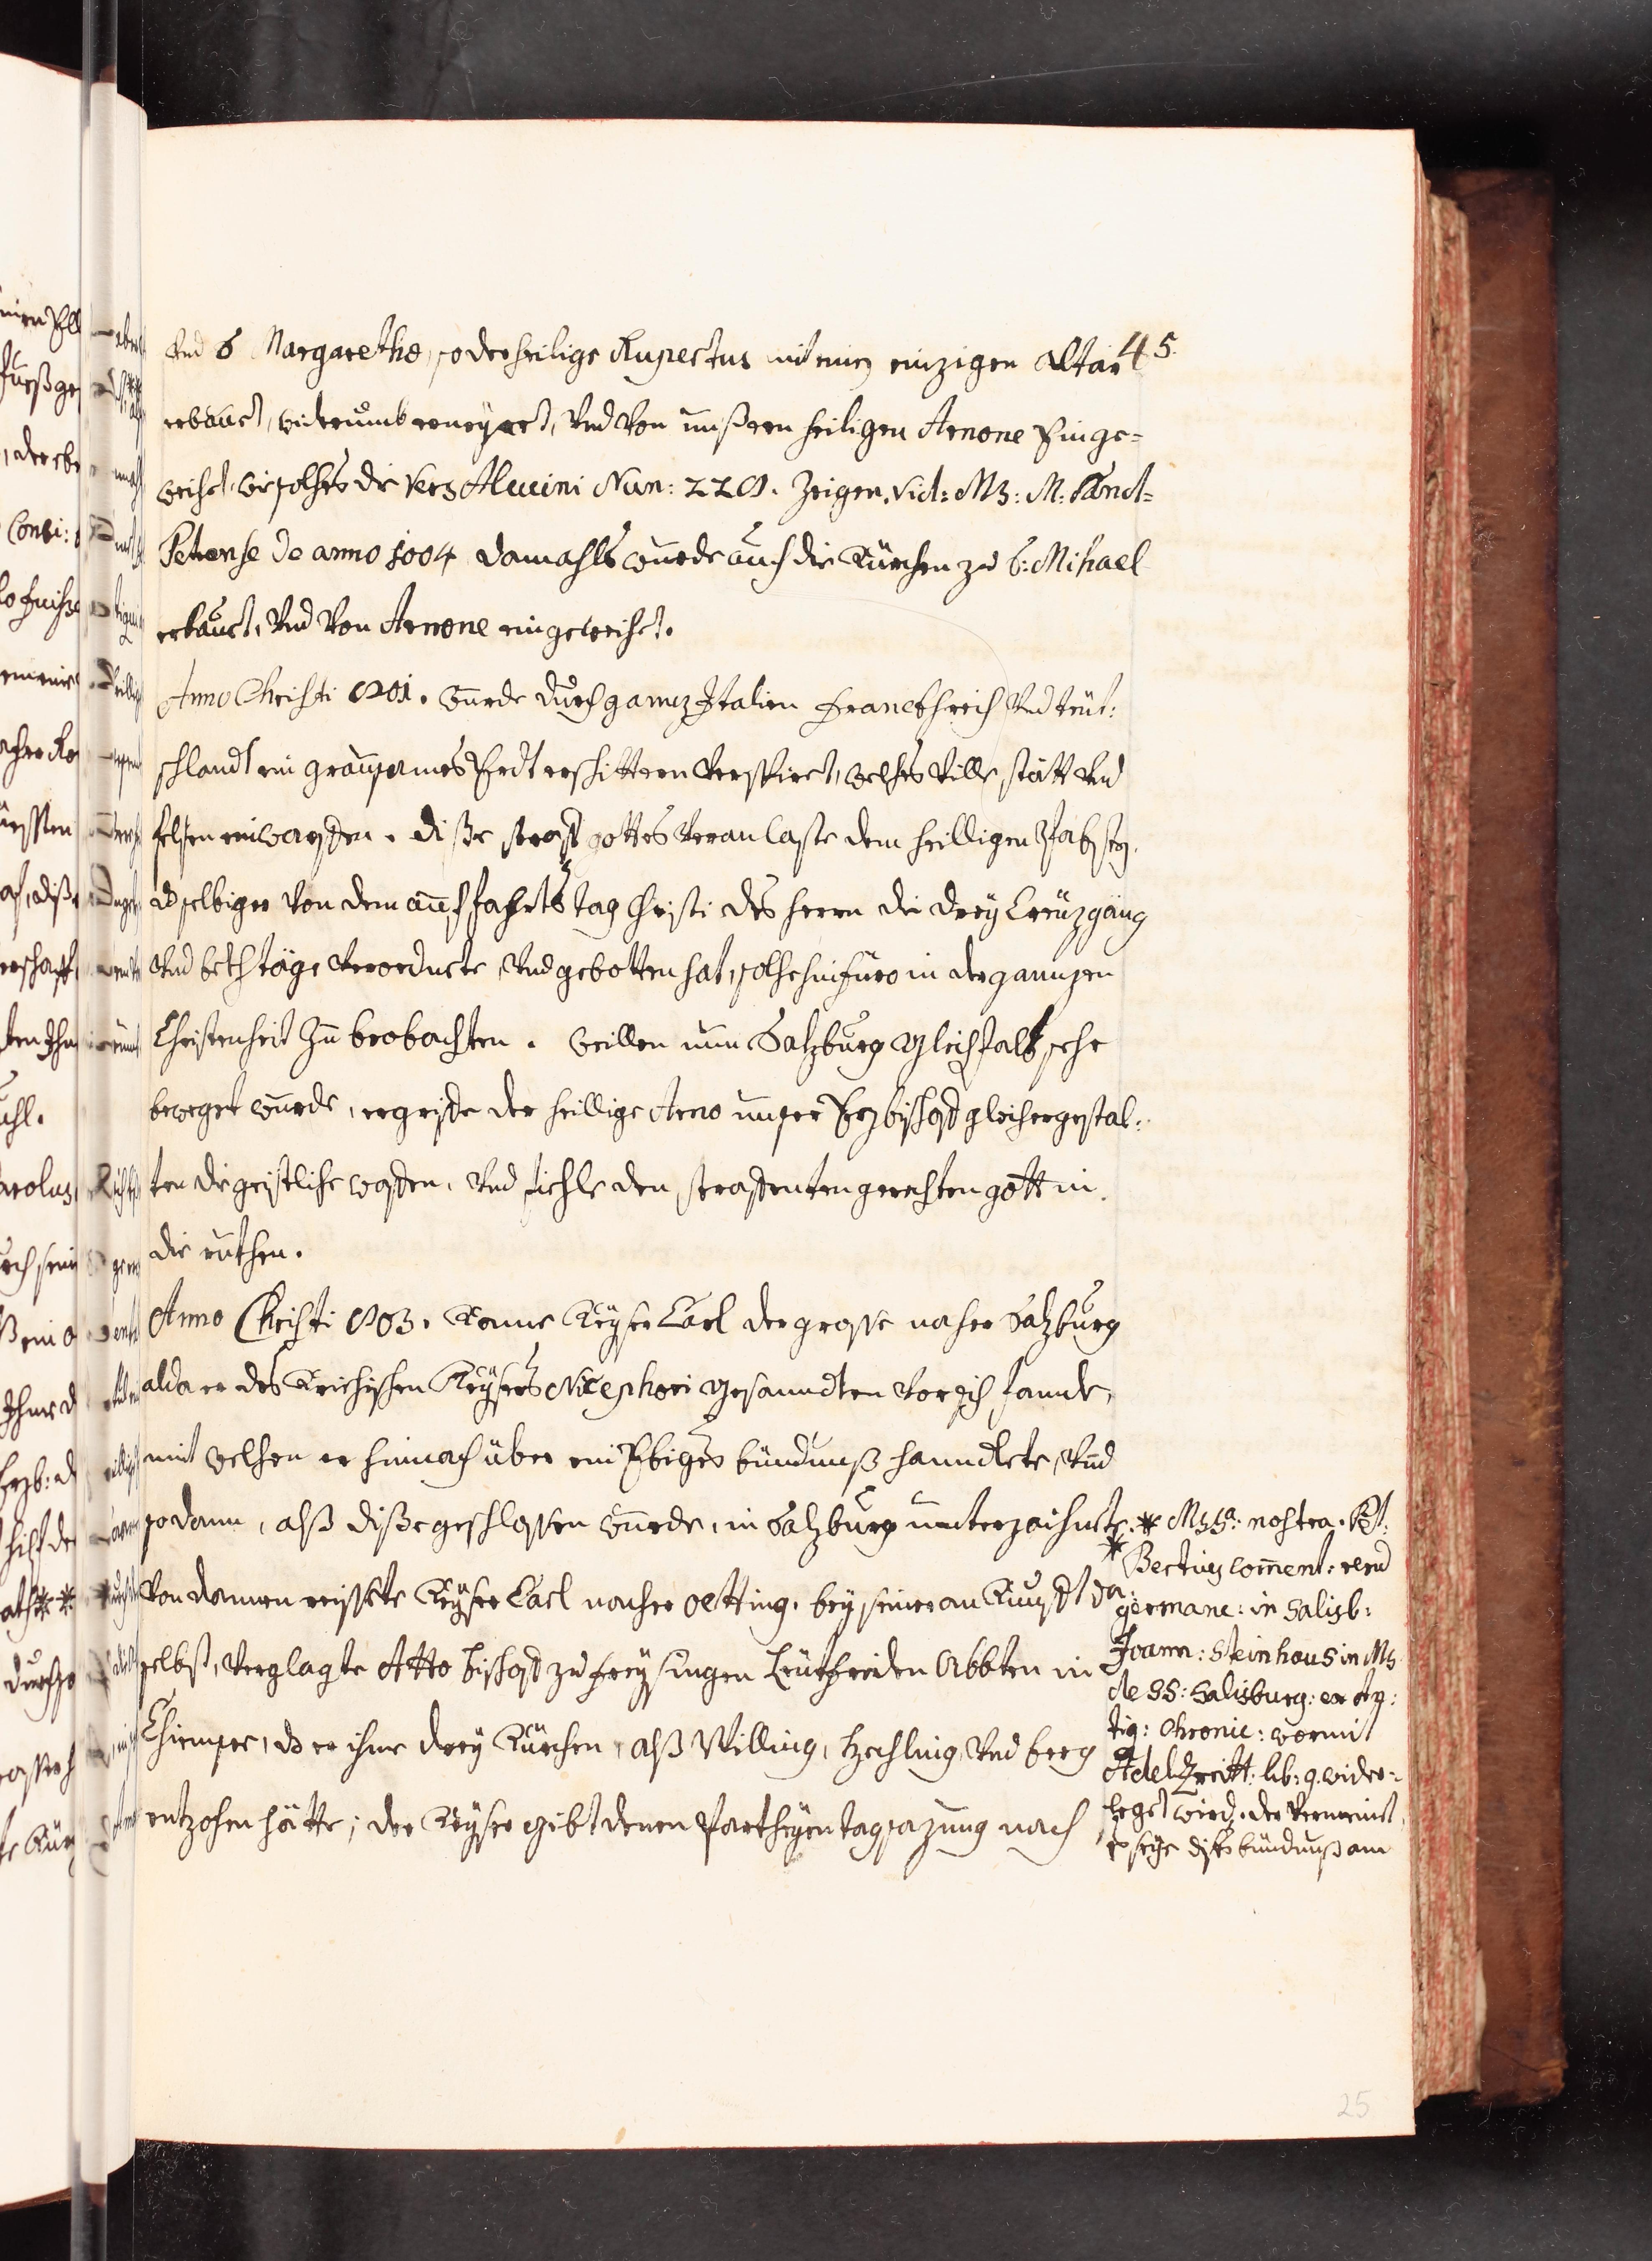 45.
Und S Margarethæ, so der heilige Rupertus mit einen einzigen Altar
erbauet, widerumb erneyert, Und Von unßeren heiligen Arnone Einge=
weihet, wie solhes die Vers Alcuini Num: 228. Zeigen. Vid: Ms: M: Sanct=
Petrense de anno 1004 damahls wurde auch die Kürchen zu S: Mihael
erbauet, Und Von Arnone eingeweihet.
Anno Christi 801. wurde durch ganz Italien Franckhreich Und teut:
schlandt ein grausames Erdt erschittern Verspiret, welhes Ville, stätt Und
felsen einwarffen. diße straff gottes Veranlaste dem heilligen Pabsten,
dß selbiger Von dem auffahrts tag Christi des herrn die drey Creuzgäng
Und beth täge Verordnete, Und gebotten hat, solhe hinfüro in der gannzen
Christenheit Zu beobachten. weillen nun Salzburg gleichfalß sehr
beweget wurde, ergriffe der heillige Arno unser Erzbischoff gleichergestal:
ten die geistlihe waffen, Und fiehle den straffenten gerechten gott in
die ruthen.
Anno Christi 803. Kame Keyser Carl der grosse naher Salzburg
alda er des Kriehischen Keysers Nicephori gesanndten Vor sich fande,
mit welhen er hirnach über ein Ebiges bündnuß hanndlete, Und
so dann, alß diße geschlossen wurde, in Salzburg unterzaihnete. *
Von dannen reissete Keyser Carl nacher oetting. bey seiner an Kunfft da
selbst, Verglagte Atto bischoff zu freysingen Leutfriden Abbten in
Chiemsee, dß er ihme drey Kürchen, alß Willing, Hechling, Und berg
entzohen hätte; der Keyser gibt denen Partheyen tagsazung nach
* Mss: nostra. Pet:
Bertius com̄ent: rerum
germanc: in Salisb:
Joann: Steinhaus in Ms
de SS: Salisburg: ex
tiq: Chronic: wormit
Adel Zreitt: lib: 9. wider=
leget wird. der Vermeinet,
es seye dises bündnuß am
25